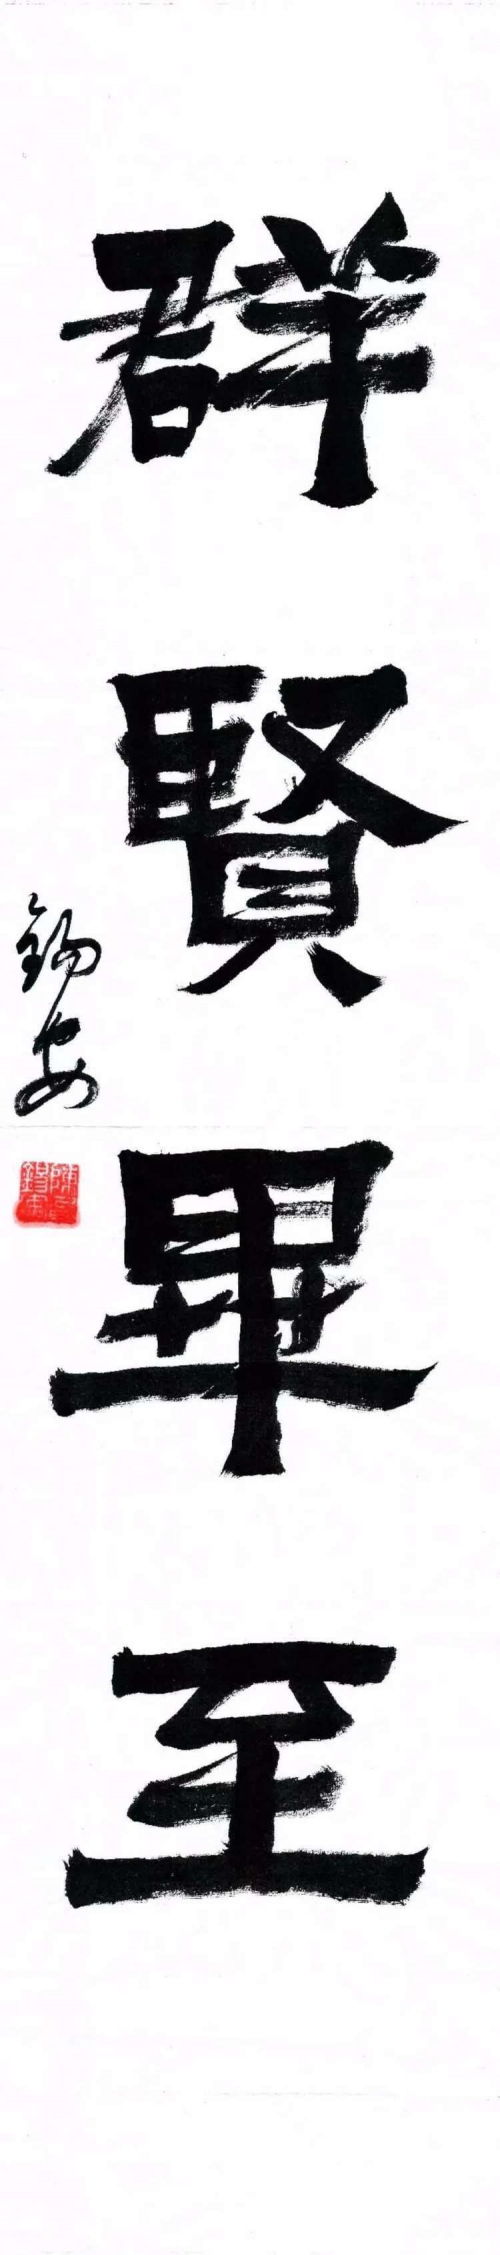 群賢畢至
錫安